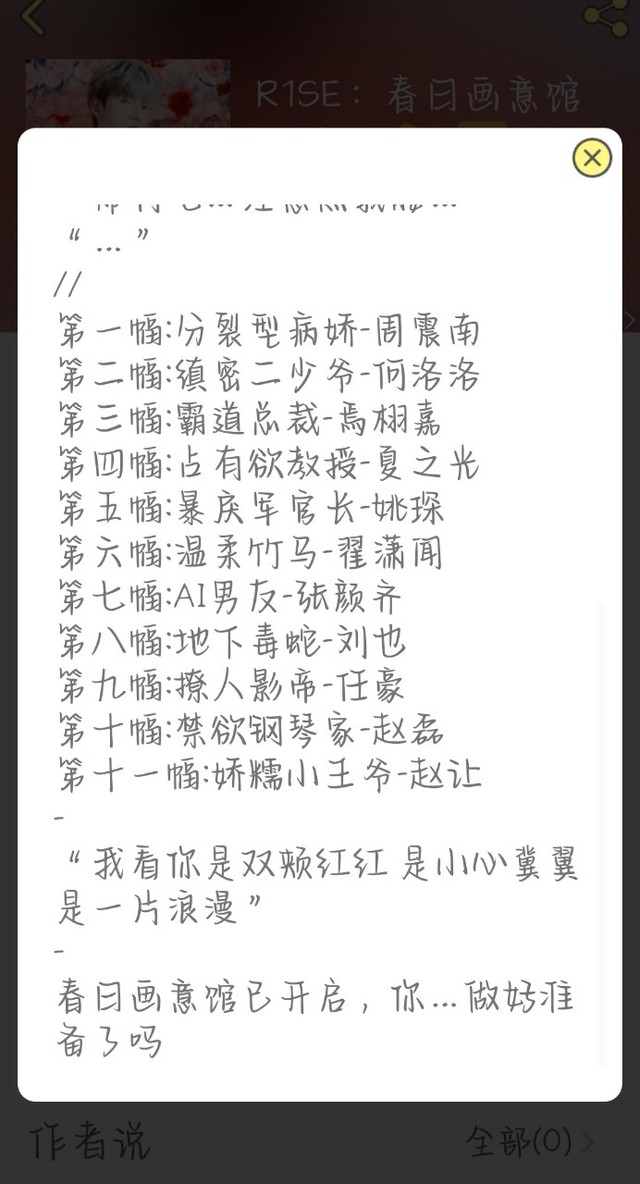 R1SE：春日画意馆
“…”
//
第一幅:分裂型病娇-周震南
第二幅:缜密二少爷-何洛洛
第三幅:霸道总裁-焉栩嘉
第四幅:占有欲教授-夏之光
第五幅:暴戾军官长-姚琛
第六幅:温柔竹马-翟潇闻
第七幅:AI男友-张颜齐
第八幅:地下毒蛇-刘也
第九幅:撩人影帝-任豪
第十幅:禁欲钢琴家-赵磊
第十一幅:娇糯小王爷-赵让
-
“我看你是双颊红红 是小心翼翼
是一片浪漫”
-
春日画意馆已开启，你…做好准
备了吗
作者说
全部(0)